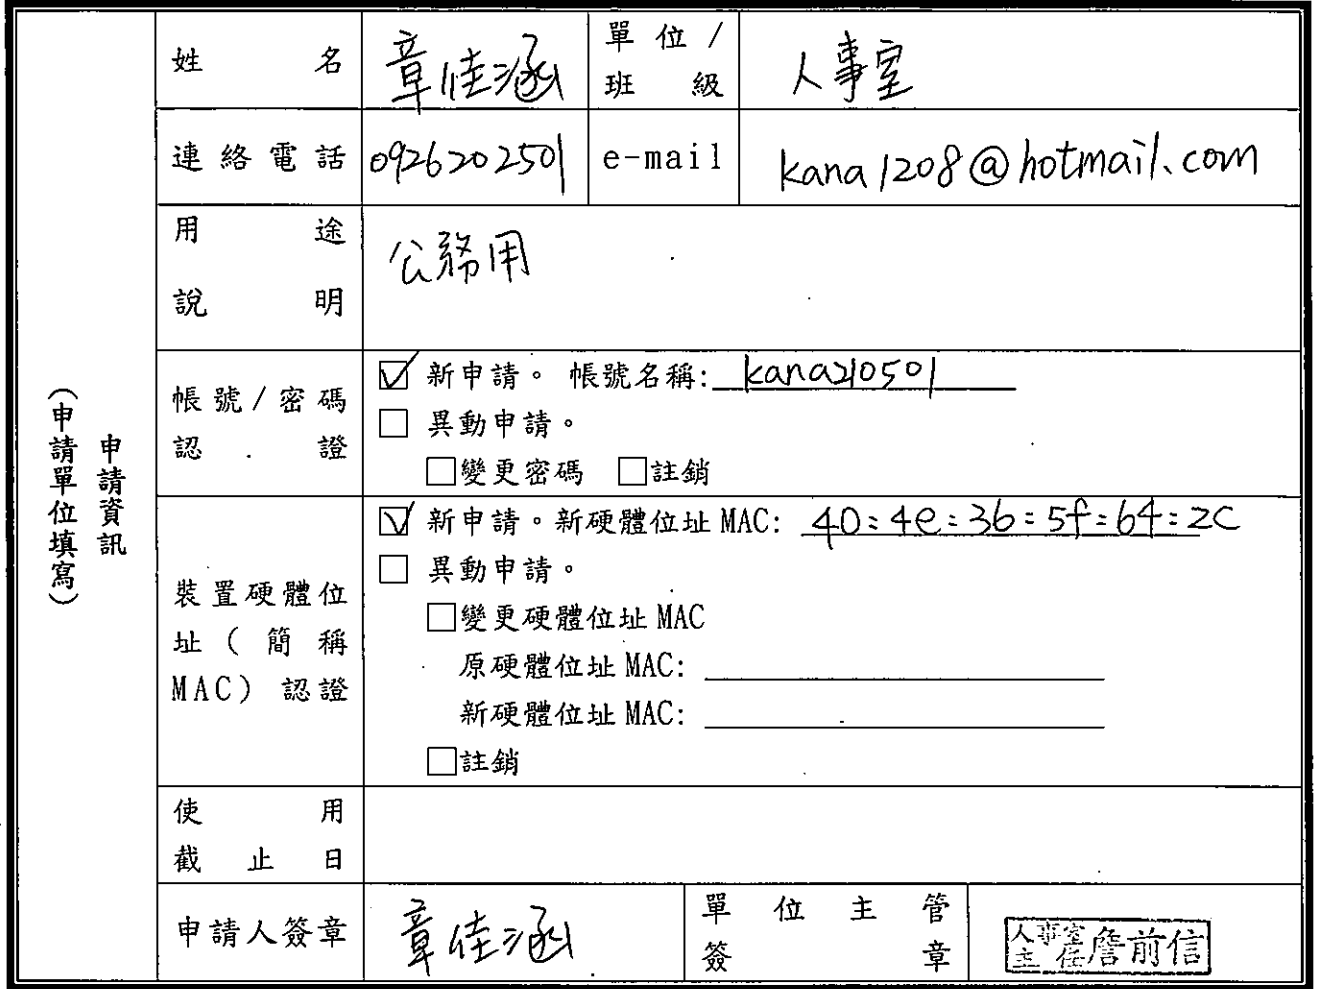 姓名 章佳涵 單位/班級 人事室
連絡電話 0926202501 e-mail kana1208@hotmail.com
用途說明 公務用
申請資訊
(申請單位填寫)
帳號/密碼認證
☑ 新申請。 帳號名稱: kana210501
□ 異動申請。
□變更密碼 □註銷
裝置硬體位址(簡稱MAC)認證
☑ 新申請。新硬體位址 MAC: 40:4e:36:5f:64:2C
□ 異動申請。
□變更硬體位址 MAC
原硬體位址 MAC:
新硬體位址 MAC:
□註銷
使用截止日
申請人簽章 章佳涵 單位主管簽章 人事室主任 詹前信